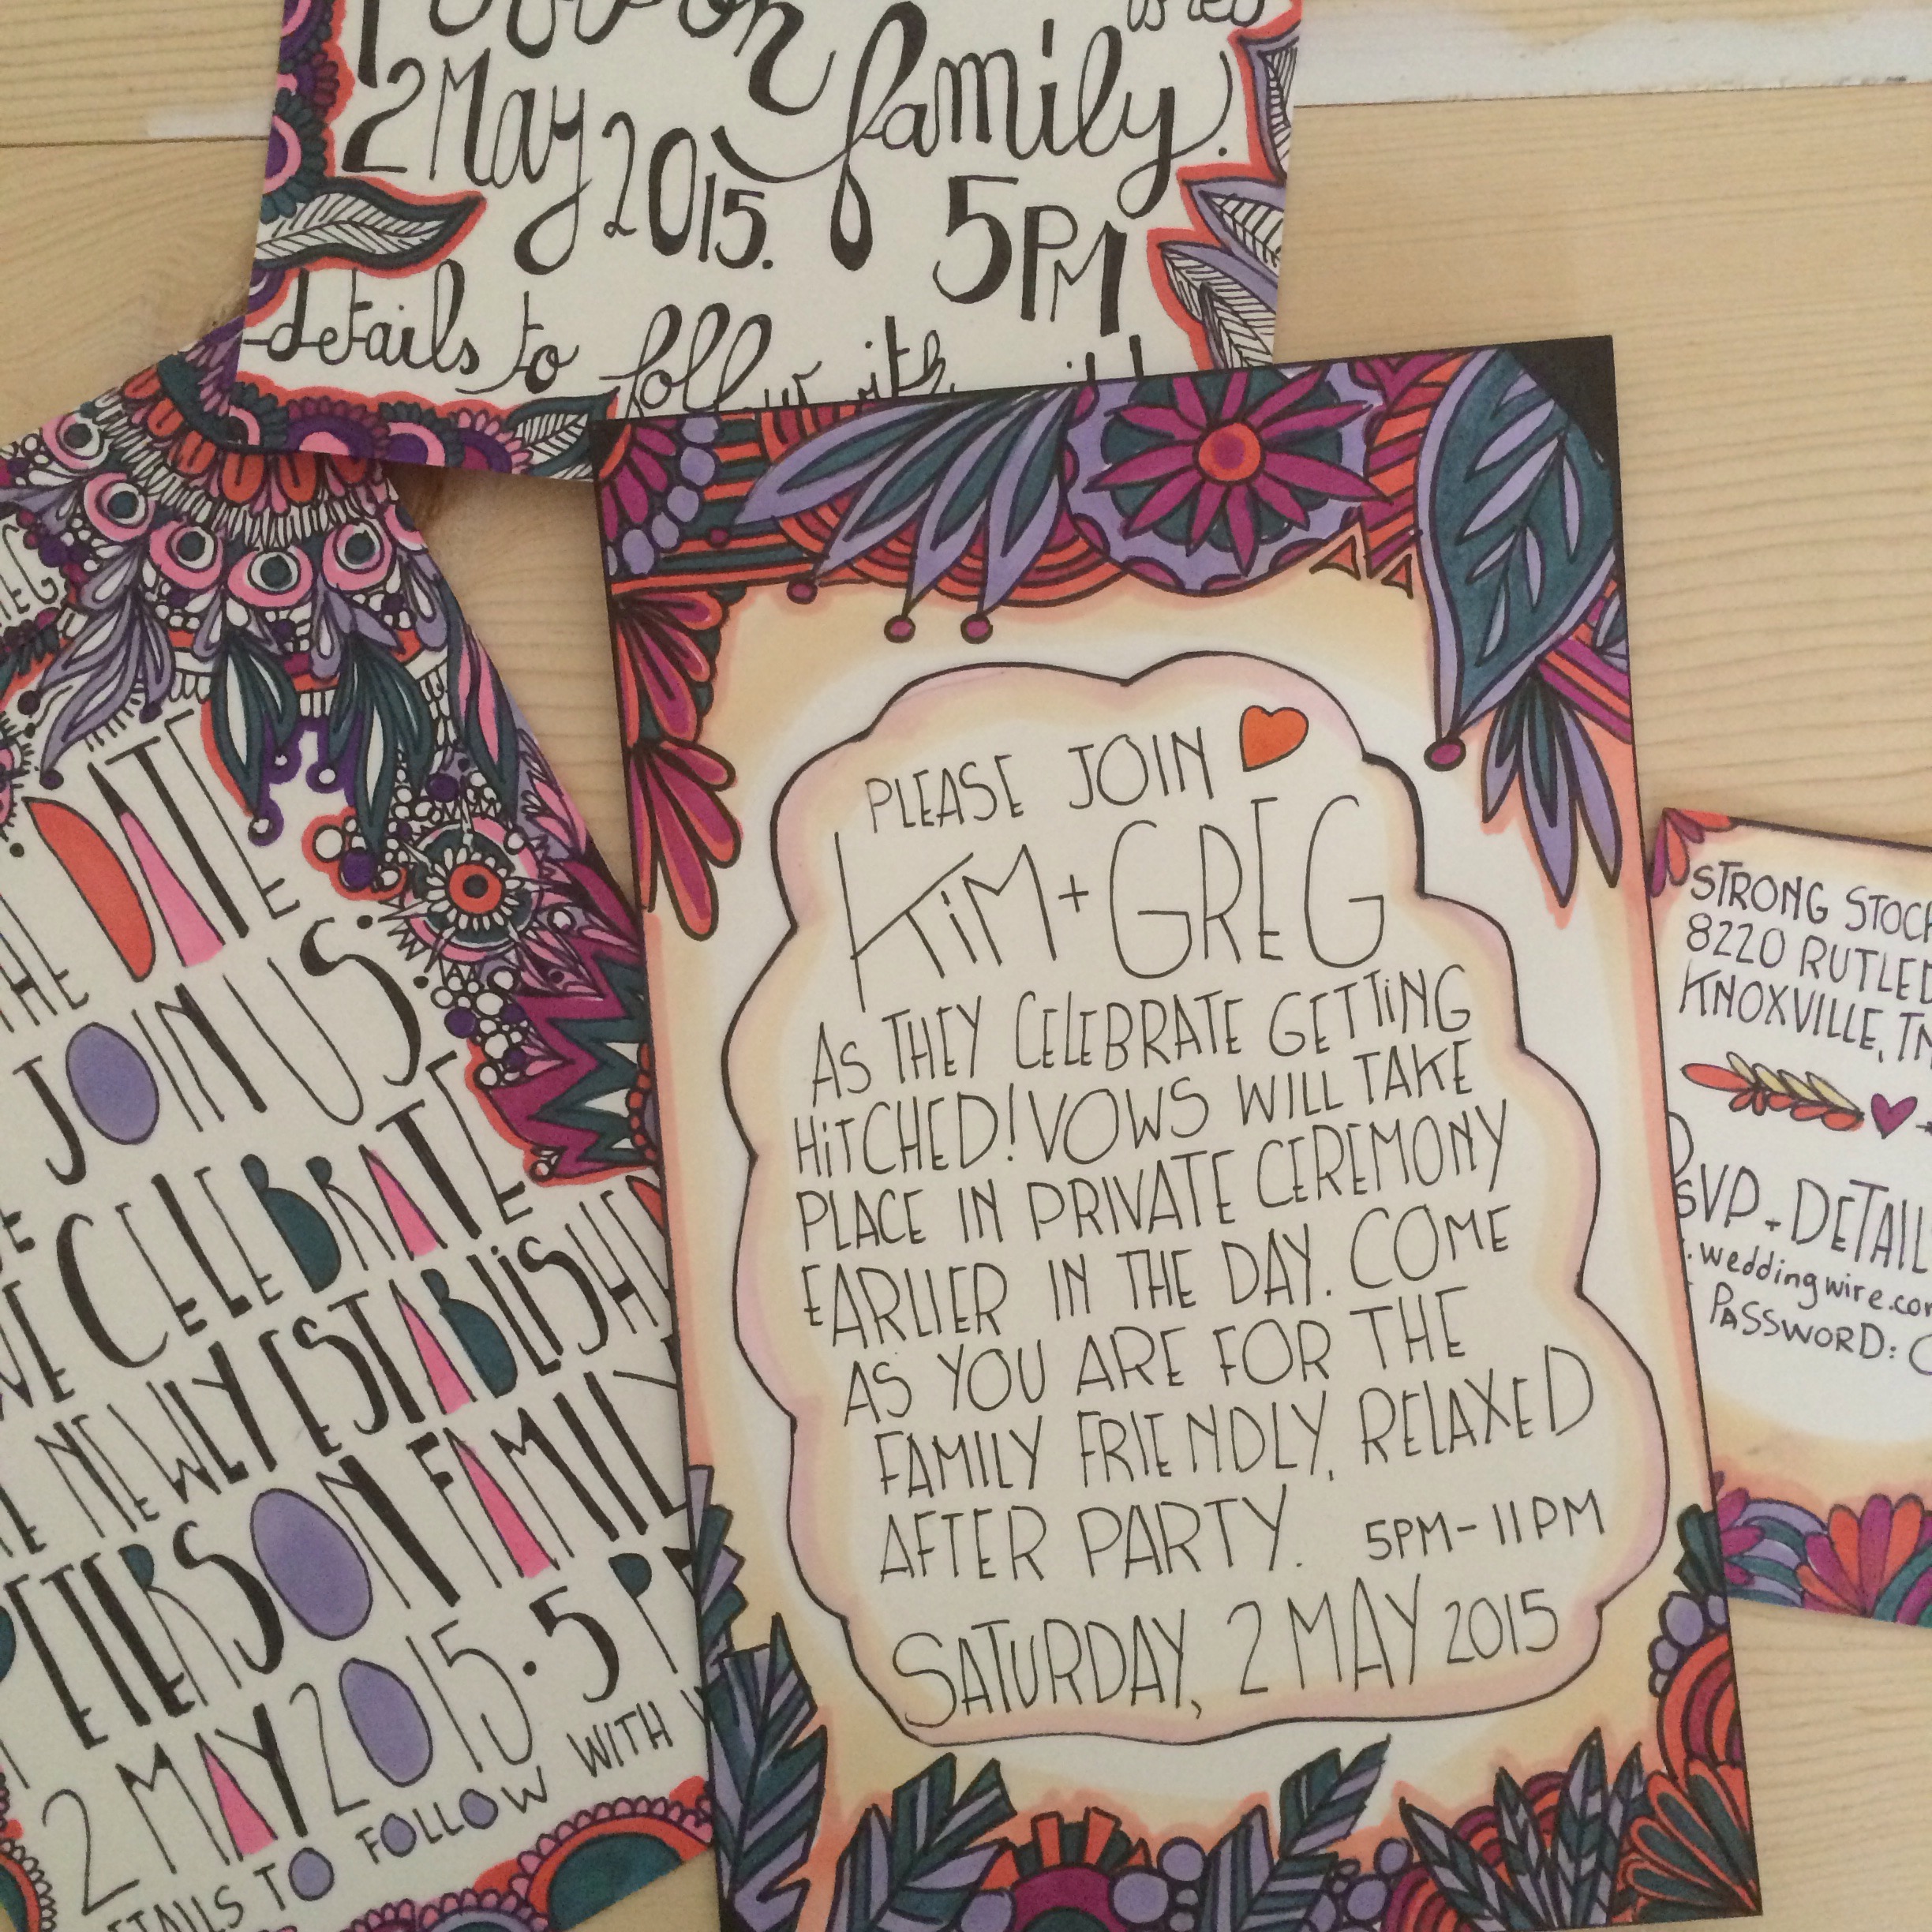 family.
2 May 2015.
5PM
details to follow with
THE DATE
JOIN US.
CELEBRATE
NEWLY ESTABLISHED
PETERSON FAMILY
2 MAY 2015 · 5 PM
DETAILS TO FOLLOW WITH
PLEASE JOIN
KiM + GREG
AS THEY CELEBRATE GETTiNG
HiTCHED! VOWS WILL TAKE
PLACE IN PRIVATE CEREMONY
EARLIER IN THE DAY. COME
AS YOU ARE FOR THE
FAMILY FRIENDLY, RELAXED
AFTER PARTY. 5PM-11PM
SATURDAY, 2 MAY 2015
STRONG STOCK
8220 RUTLED
KNOXVILLE, TN
RSVP + DETAILS
.weddingwire.com
PASSWORD: